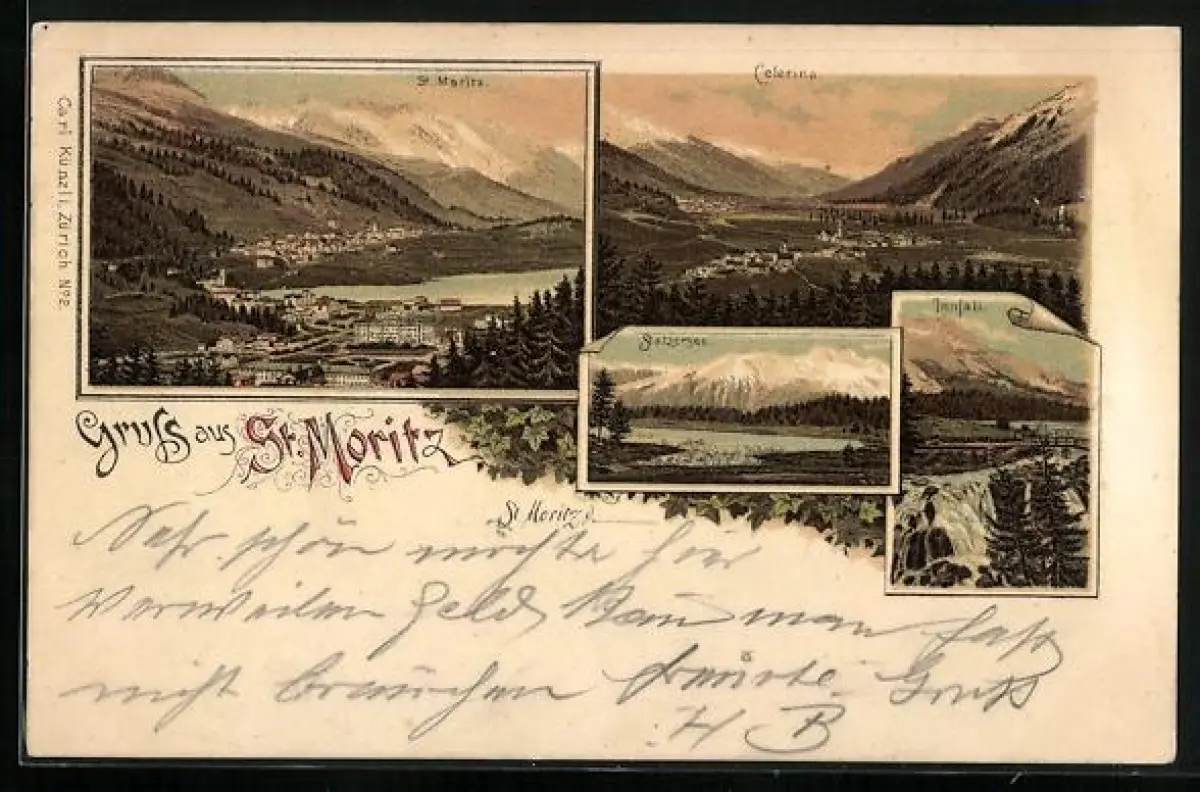 St. Moritz.
Celerina
Carl Künzli, Zürich No 2.
Statzersee
Innfall
Gruss aus St. Moritz
St. Moritz d.
Sehr schön möchte hir
Verweilen Geld kan man fast
nicht brauchen Gruß
H B